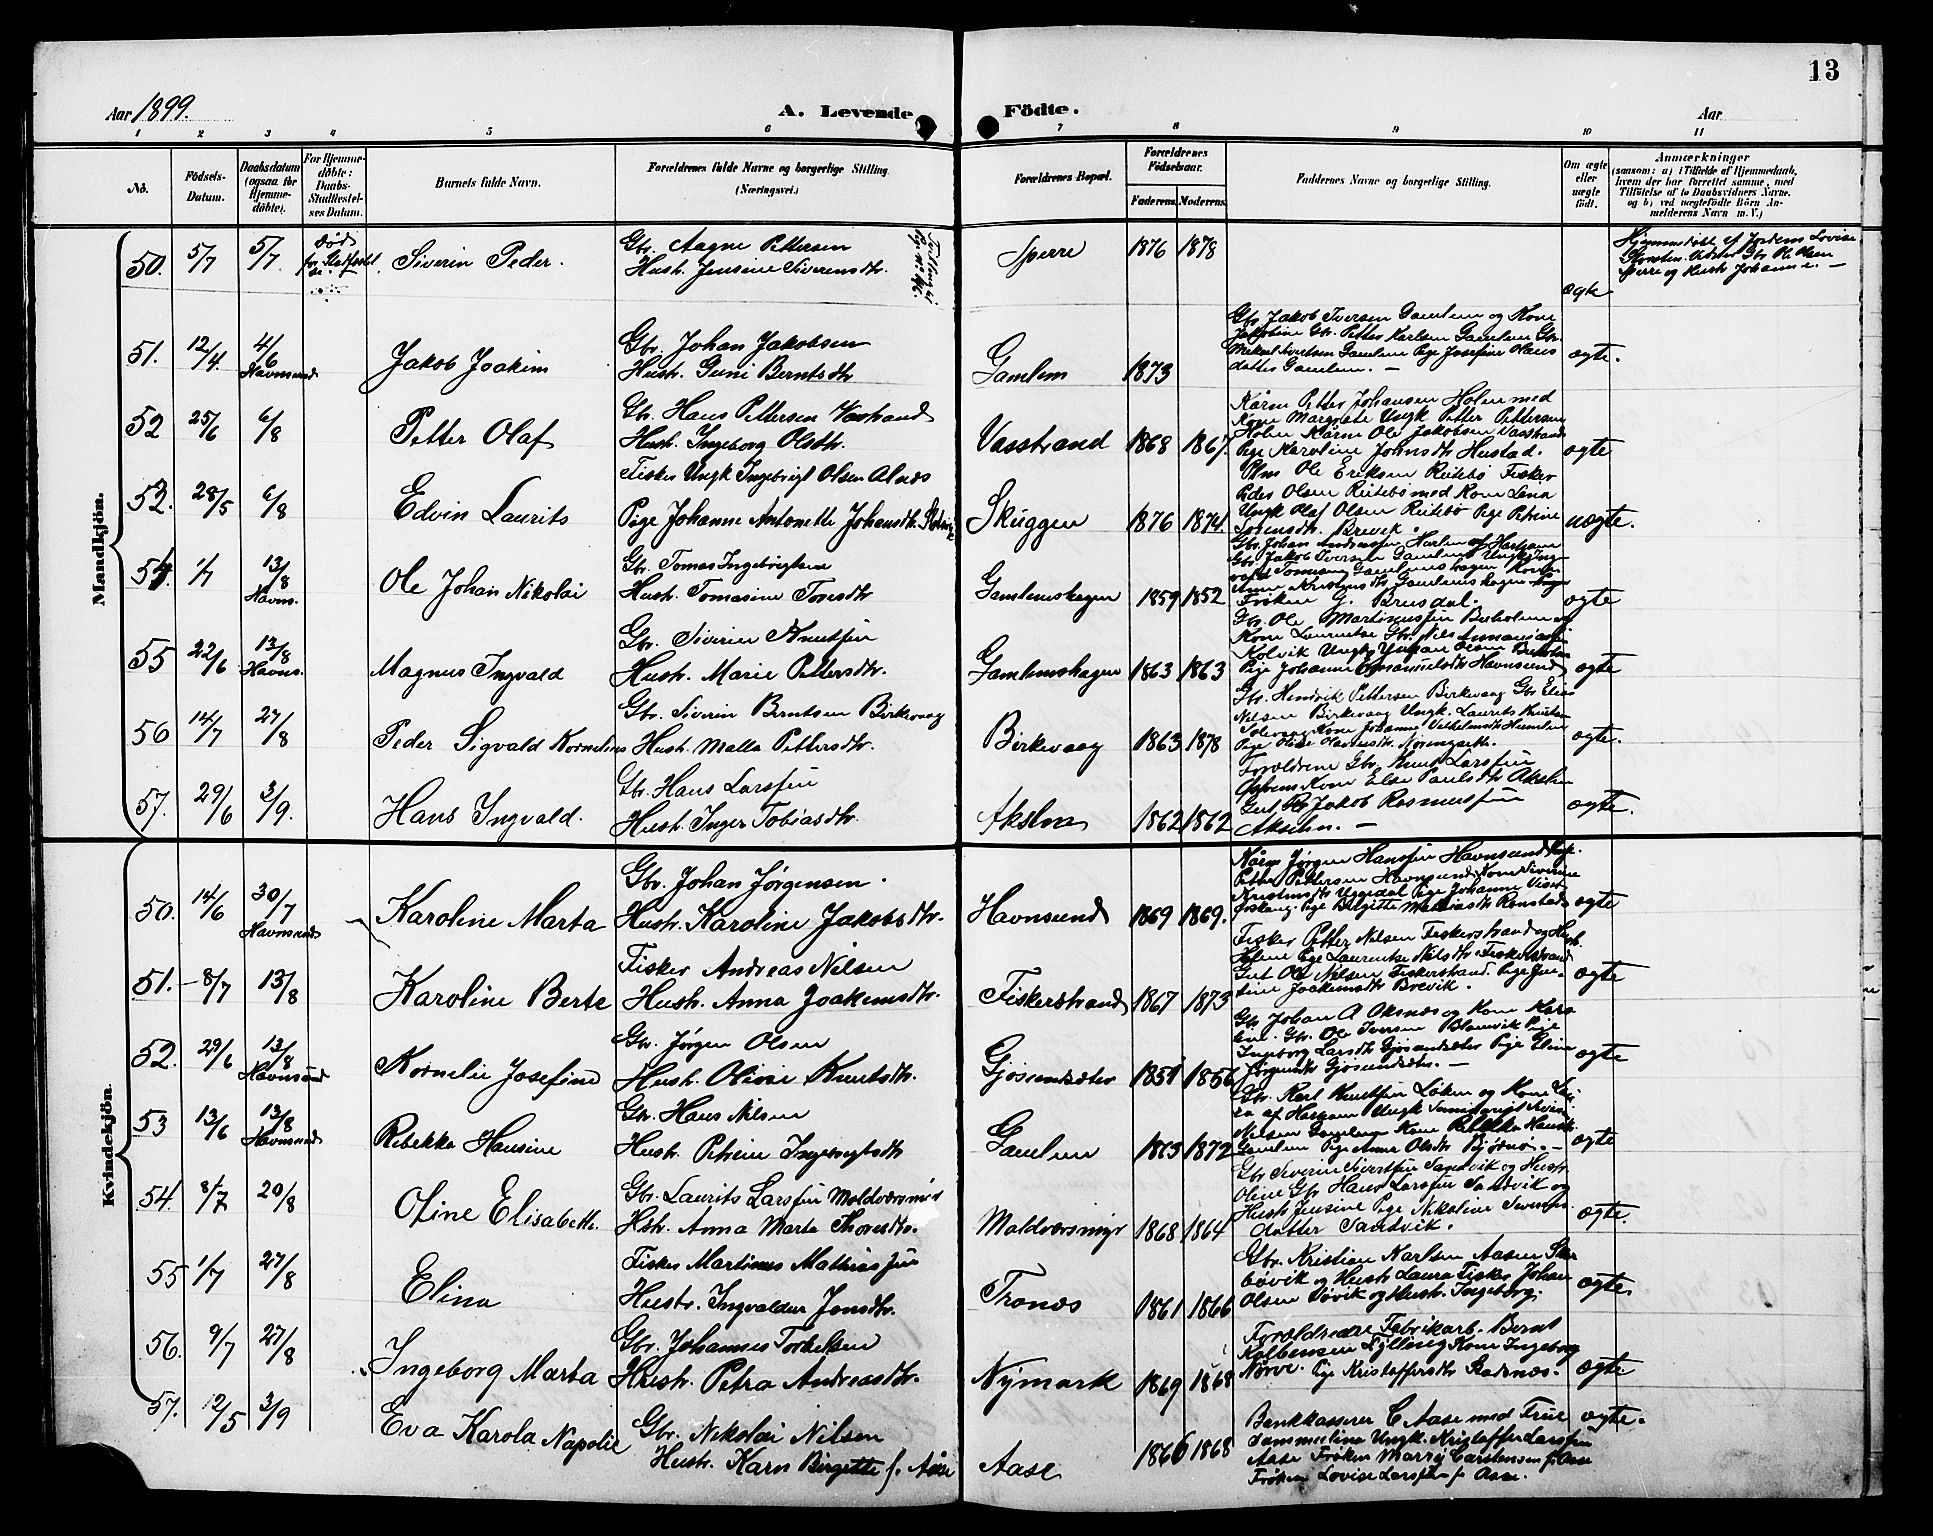 13
Aar 1899.
A. Levende Födte.
Aar
1 2 3 4 5 6 7 8 9 10 11
No.
Födsels-Datum.
Daabsdatum (ogsaa for Hjemme-döbte).
For Hjemme-döbte: Daabs-Stadfæstel-ses Datum.
Barnets fulde Navn.
Forældrenes fulde Navne og borgerlige Stilling.
(Næringsvei.)
Forældrenes Bopæl.
Forældrenes Födselsaar.
Faderens. Moderens.
Faddernes Navne og borgerlige Stilling.
Om ægte eller uægte födt.
Anmærkninger
(saasom: a) i Tilfælde af Hjemmedaab, hvem der har forrettet samme, med Tilföielse af to Daabsvidners Navne. og b) ved uægtefödte Börn Anmelderens Navn m. V.)
Mandkjön.
50. 5/7 5/7. Död før Stadfæstel Siverin Peder.
Gbr. Aagne Pettersen
Hustr. Jensine Siverinsdtr.
Sperre 1876 1878 ægte
Hjemmedöbt af Jordem Lovise
Vidner Gbr Ole Olsen
Sperre og Hustr Johanne. —
51. 12/4. 4/6 Havnsund Jakob Joakim
Gbr. Johan Jakobsen
Hustr. Guni Berntsdtr
Gamlem 1873
Gbr Jakob Iversen Gamlem og Kone
Jakobine Gbr. Petter Karlsen Gamlem Gbr.
Gamlem Pige Josefine Olaus
datter Gamlem. —
ægte.
52 25/6 6/8 Petter Olaf
Gbr. Hans Pettersen Vasstrand
Hustr. Ingeborg Olsdtr.
Vasstrand 1868 1867.
Kårm Petter Johansen Holen med
Kone Margrete Ungk Petter Pettersen
Holen Kårm Ole Jakobsen Vasstrand
Pige Karoline Johnsdtr Hustad.
ægte
53. 28/5 6/8 Edvin Laurits
Fisker Ungk Ingebrigt Olsen Alnes
Pige Johanne Antonette Johansdtr.
Skuggen 1876 1874.
Ole Eriksen Reitebø Fisker
Peder Olsen Reitebø med Kone Lena
Ungk Olaf Olsen Reitebø Pige Petrine
Brevik.
uægte.
54. 1/7 13/8 Havns. Ole Johan Nikolai
Gbr. Tomas Ingebrigtsen
Hustr. Tomasine Toresdtr
Gamlemshagen 1859 1852
Gbr. Johan Andreassen Harlem af Harham
Gbr. Jakob Iversen Gamlem Ungk
Gamlemshagen
Gamlemshagen
Frøken G. Brusdal.
ægte
55 22/6 13/8 Havns. Magnus Ingvald
Gbr. Siverin Knutsen
Hustr. Marie Pettersdtr.
Gamlemshagen 1863 1863
Gbr. Ole Martinussen
Kone Laurentse Gbr. Nils
Kolvik Ungk Johan Olsen
Pige Johanne Emanuelsdtr Havnsund
ægte
56 14/7 27/8 Peder Sigvald Kornelius
Gbr. Siverin Berntsen Birkevaag
Hustr. Malla Pettersdtr.
Birkevaag 1863 1878
Gbr. Hendrik Pettersen Birkevaag Gbr Elias
Nilsen Birkevaag Ungk. Laurits Kristian
Solevaag Kone Johanne Vilhelmsdtr Humlen
Pige
ægte.
57. 29/6 3/9. Hans Ingvald.
Gbr. Hans Larssen
Hustr. Inger Tobiasdtr.
Akslen 1862 1862
Forældrene Gbr. Knut Larssen
Kone Else Paulsdtr Akslen
Gut Jakob Rasmussen
Akslen. —
ægte.
Kvindekjön.
50. 14/6 30/7 Havnsund Karoline Marta
Gbr. Johan Jørgensen.
Hustr. Karoline Jakobsdtr.
Havnsund 1869 1869.
Kårm Jørgen Hanssen Havnsund
Petter Pettersen Havnsund Kone Siverine
Kristensdtr Uggedal Pige Johanne
Pige Birgitte Mathiasdtr Rønstad
ægte
51. 8/7 13/8 Karoline Berte
Fisker Andreas Nilsen
Hustr. Anna Joakimsdtr.
Fiskerstrand 1867 1873
Fisker Petter Nilsen Fiskerstrand og Hustr.
Helene Pige Laurentse Nilsdtr Fiskerstrand
Gut Ole Nilsen Fiskerstrand. Pige Jen-
sine Joakimsdtr Brevik.
ægte
52. 29/6 13/8 Havnsund Kornelie Josefine
Gbr. Jørgen Olsen
Hustr. Oline Knutsdtr.
Gjøsundsæter 1851 1856
Gbr. Johan A Oksnes og Kone Karo
line. Gbr. Ole Iversen Blomvik Pige
Ingeborg Larsdtr Gjøsundsæter Pige Eline
Jørgensdtr Gjøsundsæter. —
ægte
53 13/6 13/8 Havnsund Rebekka Hansine
Gbr. Hans Nilsen
Hustr. Petrine Ingebrigtsdtr
Gamlem 1863 1872
Gbr. Karl Knutsen Løken og Kone
af Harham Ungk
Nilsen Gamlem Kone Rebekka
Gamlem Pige Anne Olsdtr Bjørnø. —
ægte
54. 8/7 20/8 Oline Elisabeth.
Gbr. Laurits Larssen Moldværsmyr
Hstr. Anna Marta Thoresdtr.
Moldværsmyr 1868 1864
Gbr Siverin Siversen Sandvik og Hustr.
Oline Gbr Hans Larssen Sandvik og
Hustr Jensine Pige Nikoline
datter Sandvik.
ægte.
55 1/7 27/8 Elina
Fisker Martinus Mathiassen
Hustr. Ingvalda Jonsdtr.
Tronæs 1861 1866
Gbr. Kristian Karlsen Aasen
bøvik og Hustr Laura Fisker Johan
Olsen Bøvik og Hustr. Ingeborg.
ægte.
56. 9/7 27/8 Ingeborg Marta
Gbr. Johannes Torkelsen
Hustr. Petra Andreasdtr.
Nymark 1869 1868
Forældrene Fabrikarb. Bernt
Kolbensen Kone Ingeborg
Nørve. Pige Kristoffersdtr
ægte.
57. 12/5 3/9 Eva Karola Napolie
Gbr. Nikolai Nilsen
Hustr. Karn Bergitte f. Aase
Aase 1866 1868
Bankkasserer C Aase med Frue
Ungk. Kristoffer Larssen
Aase Frøken Marry Carstensen f. Aase
Frøken Lovise Larssen f. Aase.
ægte.